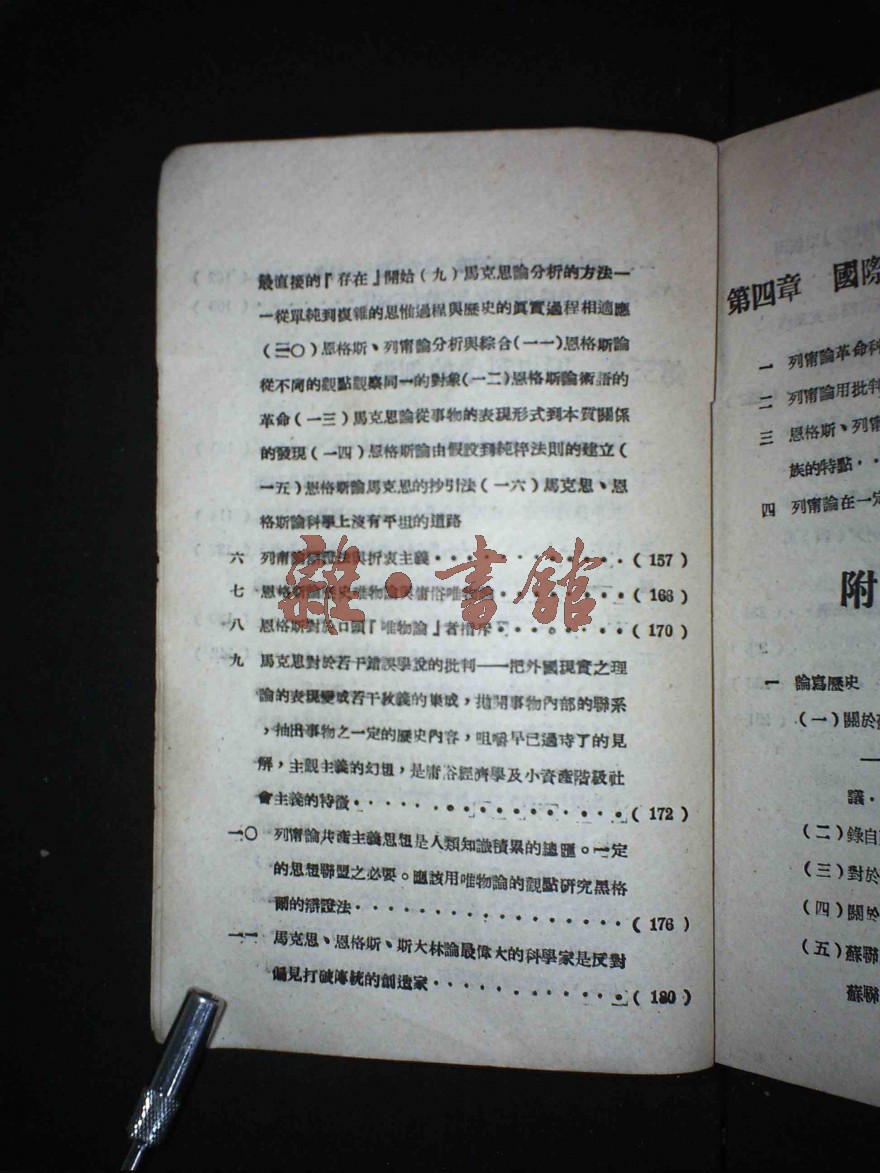 最直接的『存在』開始(九)馬克思論分析的方法一
一從單純到複雜的思惟過程與歷史的眞實過程相適應
(三〇)恩格斯、列甯論分析與綜合(一一)恩格斯論
從不同的觀點觀察同一的對象(一二)恩格斯論術語的
革命(一三)馬克思論從事物的表現形式到本質關係
的發現(一四)恩格斯論由假設到純粹法則的建立(
一五)恩格斯論馬克思的抄引法(一六)馬克思、恩
格斯論科學上沒有平坦的道路
六 列甯論辯證法與折衷主義・・・・・・・・・・・(157)
七 恩格斯論歷史唯物論與庸俗唯物論・・・・・・・・(168)
八 恩格斯對於口頭『唯物論』者指斥・・・・・・・・(170)
九 馬克思對於若干錯誤學說的批判——把外國現實之理
論的表現變成若干敎義的集成,拋開事物內部的聯系
,抽出事物之一定的歷史內容,咀嚼早已過時了的見
解,主觀主義的幻想,是庸俗經濟學及小資產階級社
會主義的特徵・・・・・・・・・・・・・・・(172)
一〇 列甯論共產主義思想是人類知識積累的總匯。一定
的思想聯盟之必要。應該用唯物論的觀點研究黑格
爾的辯證法・・・・・・・・・・・・・・・・(176)
一一 馬克思、恩格斯、斯大林論最偉大的科學家是反對
偏見打破傳統的創造家・・・・・・・・・・・(180)
雜・書館
第四章 國際
一 列甯論革命科
二 列甯論用批判
三 恩格斯、列甯
族的特點・・
四 列甯論在一定
附
一 論寫歷史
(一)關於
議・
(二)錄自
(三)對於
(四)關於
(五)蘇聯
蘇聯